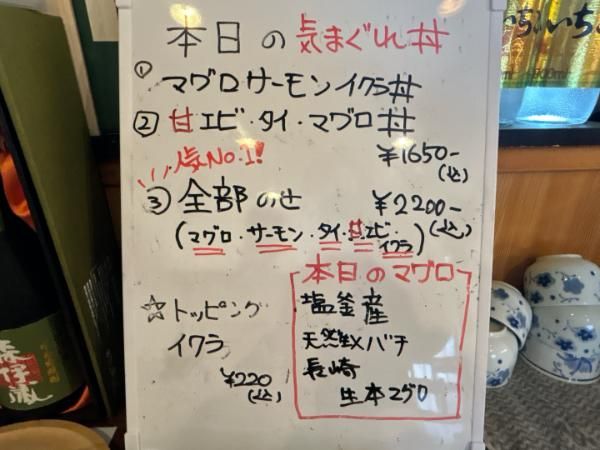 本日の気まぐれ丼
① マグロサーモンイクラ丼
② 甘エビ・タイ・マグロ丼
¥1650-
(込)
人気No.1!
③ 全部のせ ¥2200-
(込)
(マグロ・サーモン・タイ・甘エビ・イクラ)
☆トッピング
イクラ
¥220
(込)
本日のマグロ
塩釜産
天然生メバチ
長崎
生本マグロ